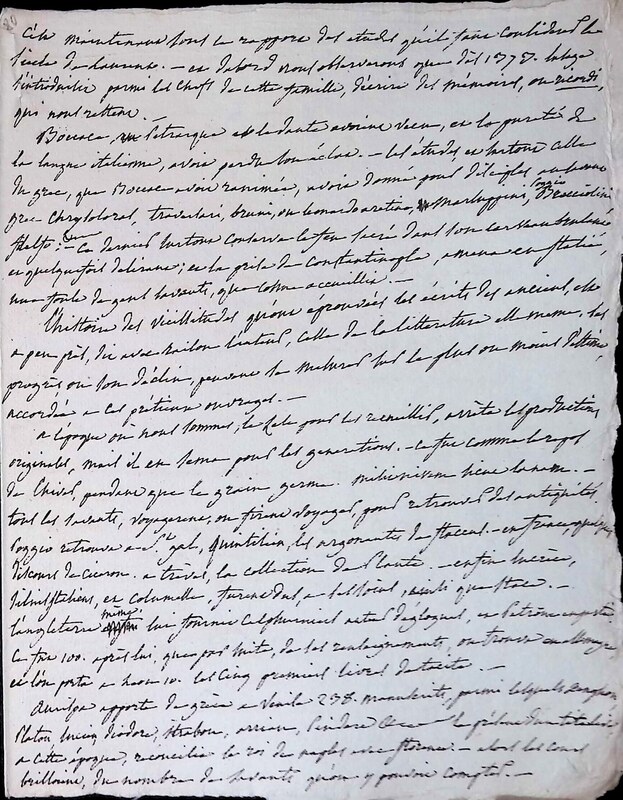 C'est maintenant sous le rapport des etudes qu'il faut considerer le
siecle de Laurent. — et d'abord nous observerons que dès 1375. l'usage
s'introduisit parmi les chefs de cette famille, d'écrire des mémoires, ou ricordi,
qui nous restent. —
Bocace, Petrarque et le dante avoient vecu, et la pureté de
la langue italienne, avoit perdu son éclat. — les études, et surtout celle
du grec, que Bocace avoit ranimée, avoit donné pour disciples au
grec Chrysoloras, traversari, bruni, ou leonardo aretin, Marsuppini, Poggio Bracciolini
filelfo. — Ce dernier surtout conserva le feu sacré dans son cerveau
et quelquefois delirant; et la prise de Constantinople, amena en Italie,
une foule de gens savants, que Cosme accueillit. —
L'histoire des vicissitudes qu'ont éprouvées les écrits des anciens, est
a peu près, dit avec raison l'auteur, celle de la litterature elle meme. Ses
progrès ou son déclin, peuvent se mesurer sur le plus ou moins d'estime,
accordée a ces prétieux ouvrages. —
a l'epoque où nous sommes, le zele pour les recueillir, arrêta les productions
originales, mais il en sema pour les generations. — ce fut comme le repos
de l'hiver, pendant que le grain germe. —
tous les savants, voyagerent, ou firent voyager, pour retrouver des antiquités.
Poggio retrouva a St. gal, Quintilien, les argonautes de flaccus. — en france, quelques
discours de Ciceron. a trèves, la collection de Plaute. — enfin lucrèce,
Silius italicus, et columelle, furent dus, a ses soins, ainsi que Stace. —
l'angleterre même lui fournit Calphurnius auteur d'églogues, et Petrone
Ce fut 100. après lui, que par suite, de ses renseignements, on trouva en
et l'on porta a Leon 10. les cinq premiers livres de tacite. —
Aurispa apporta de grèce a Venise 238. manuscrits, parmi lesquels
Platon, lucien, diodore, strabon, arrien, Pindare &c — la présence
a cette époque, reconcilia le roi de naples avec florence. — alors les cours
brilloient, du nombre de savants qu'on y pouvoit compter. —